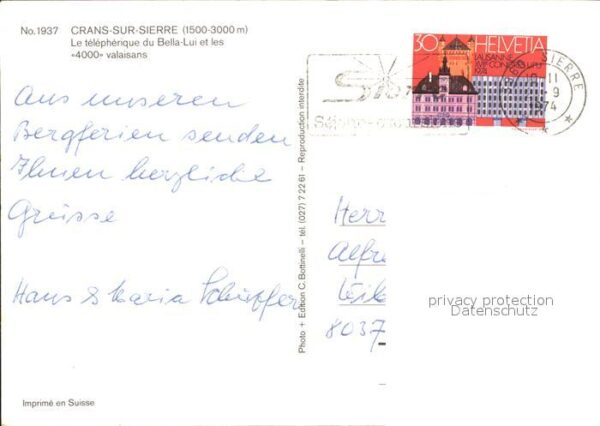 No. 1937 CRANS-SUR-SIERRE (1500-3000 m)
Le téléphérique du Bella-Lui et les
«4000» valaisans
Aus unseren
Bergferien senden
Ihnen herzliche
Grüsse
Hans & Maria
Imprimé en Suisse
Photo + Edition C. Bottinelli – tél. (027) 7 22 61 – Reproduction interdite
30 HELVETIA
LAUSANNE
XVIIe CONGRÈS UPU
1974
SIERRE
Herr
Alfre
8037
privacy protection
Datenschutz